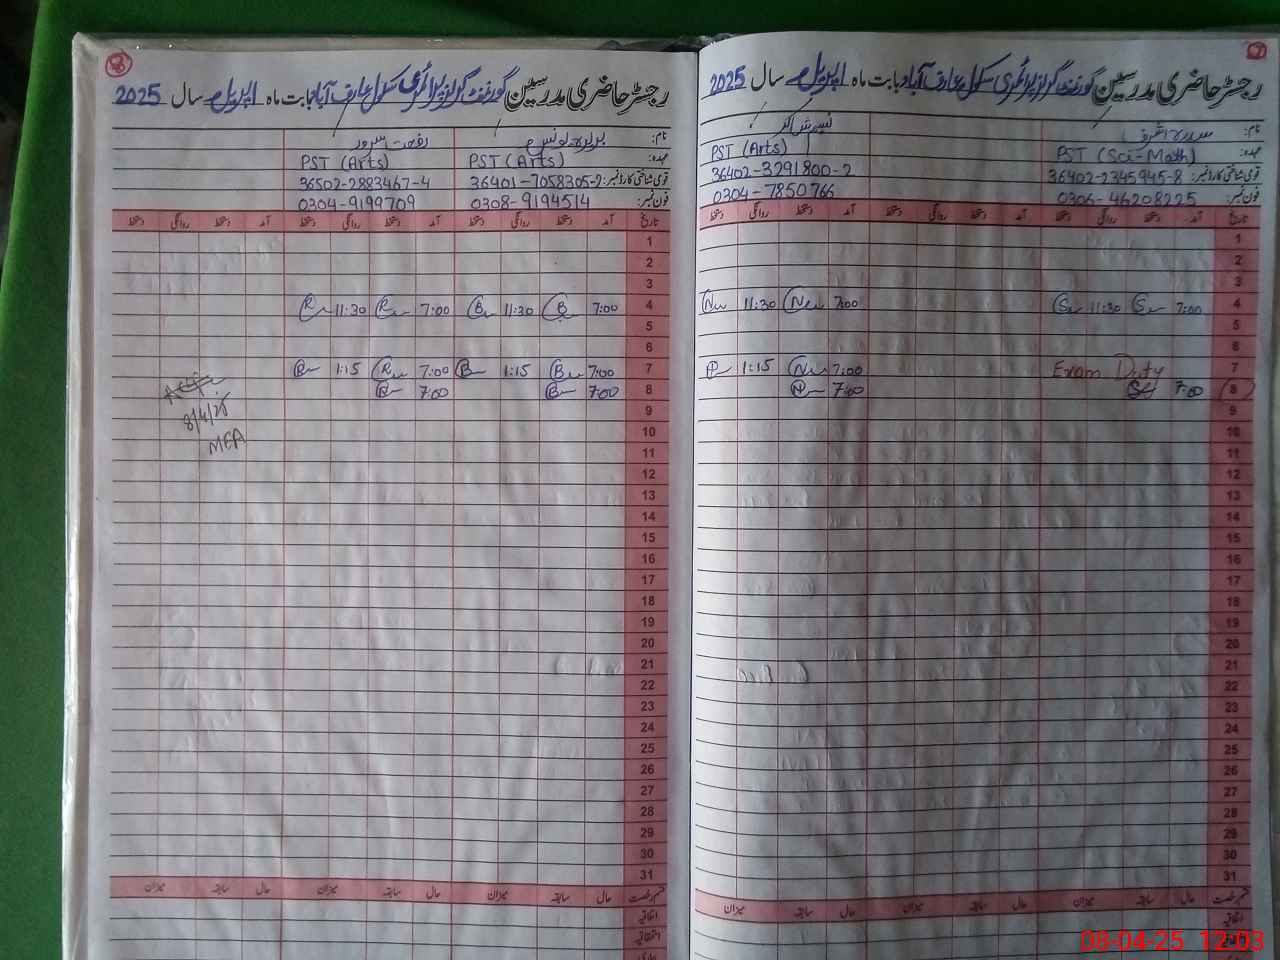 رجسٹر حاضری مدرسین گورنمنٹ گرلز پرائمری سکول عارف آباد بابت ماہ اپریل سال 2025
نام: سدرہ اشرف نسیم شاکر
عہدہ: PST (Sci-Math) PST (Arts)
قومی شناختی کارڈ نمبر: 36402-2345945-8 36402-3291800-2
فون نمبر: 0306-46208225 0304-7850766
تاریخ آمد دستخط روانگی دستخط آمد دستخط روانگی دستخط آمد دستخط روانگی دستخط
1
2
3
4 7:00 11:30 7:00 11:30
5
6
7 Exam Duty 7:00 1:15
8 7:00 7:00
9
10
11
12
13
14
15
16
17
18
19
20
21
22
23
24
25
26
27
28
29
30
31
قسم رخصت حال سابقہ میزان حال سابقہ میزان حال سابقہ میزان
اتفاقیہ
استحقاقیہ
رجسٹر حاضری مدرسین گورنمنٹ گرلز پرائمری سکول عارف آباد بابت ماہ اپریل سال 2025
نام: رفعت سرور
عہدہ: PST (Arts) PST (Arts)
قومی شناختی کارڈ نمبر: 36401-7058305-2 36502-2883467-4
فون نمبر: 0308-9194514 0304-9199709
تاریخ آمد دستخط روانگی دستخط آمد دستخط روانگی دستخط آمد دستخط روانگی دستخط
1
2
3
4 7:00 11:30 7:00 11:30
5
6
7 7:00 1:15 7:00 1:15
8 7:00 7:00
8/4/25
MEA
9
10
11
12
13
14
15
16
17
18
19
20
21
22
23
24
25
26
27
28
29
30
31
قسم رخصت حال سابقہ میزان حال سابقہ میزان حال سابقہ میزان
اتفاقیہ
استحقاقیہ
08-04-25 12:03